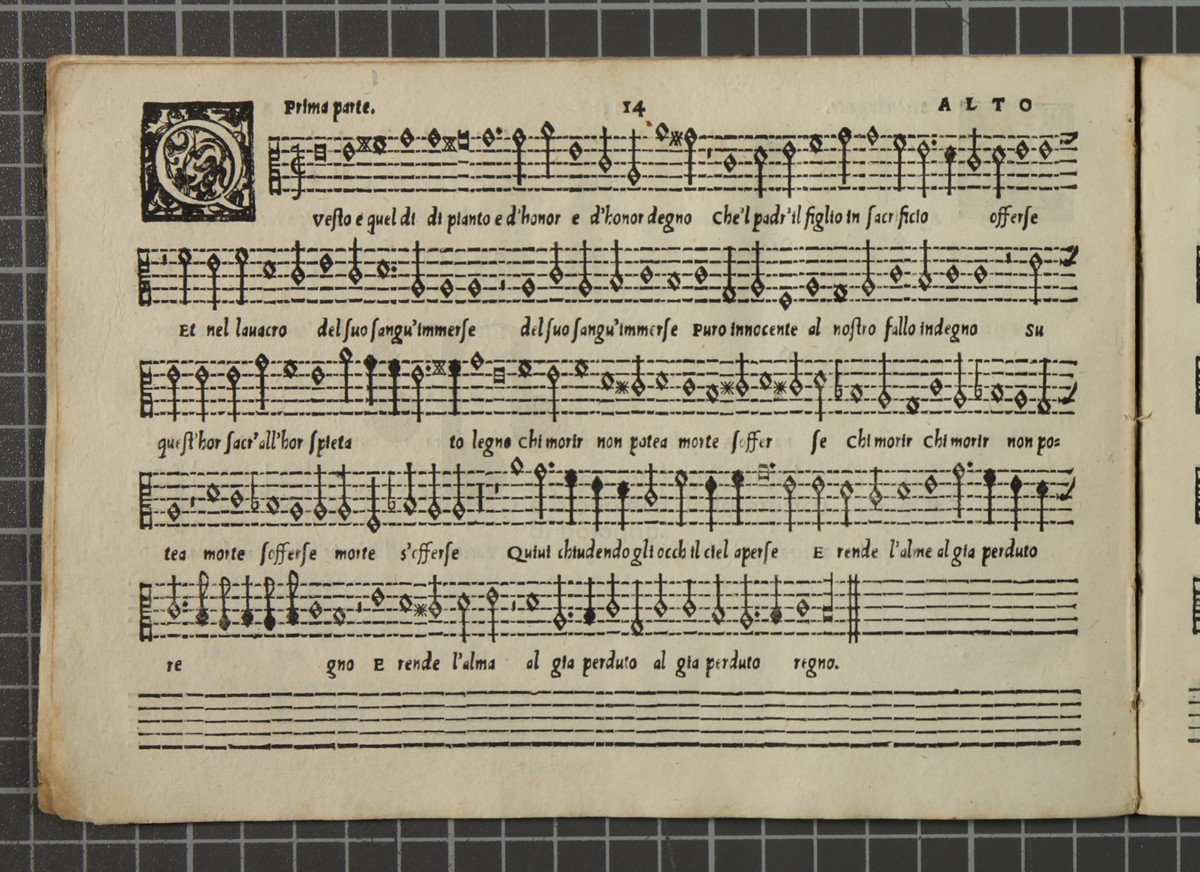 Prima parte. 14 ALTO
Questo e quel di di pianto e d'honor e d'honor degno Che'l padr'il figlio in sacrificio offerse
Et nel lauacro del suo sangu'immerse del suo sangu'immerse Puro innocente al nostro fallo indegno Su
quest'hor sacr'all'hor spieta to legno chi morir non potea morte soffer se Chi morir Chi morir non po=
tea morte sofferse morte s'offerse Quiui chiudendo gli occh il ciel aperse E rende l'alme al gia perduto
re gno E rende l'alma al gia perduto al gia perduto regno.